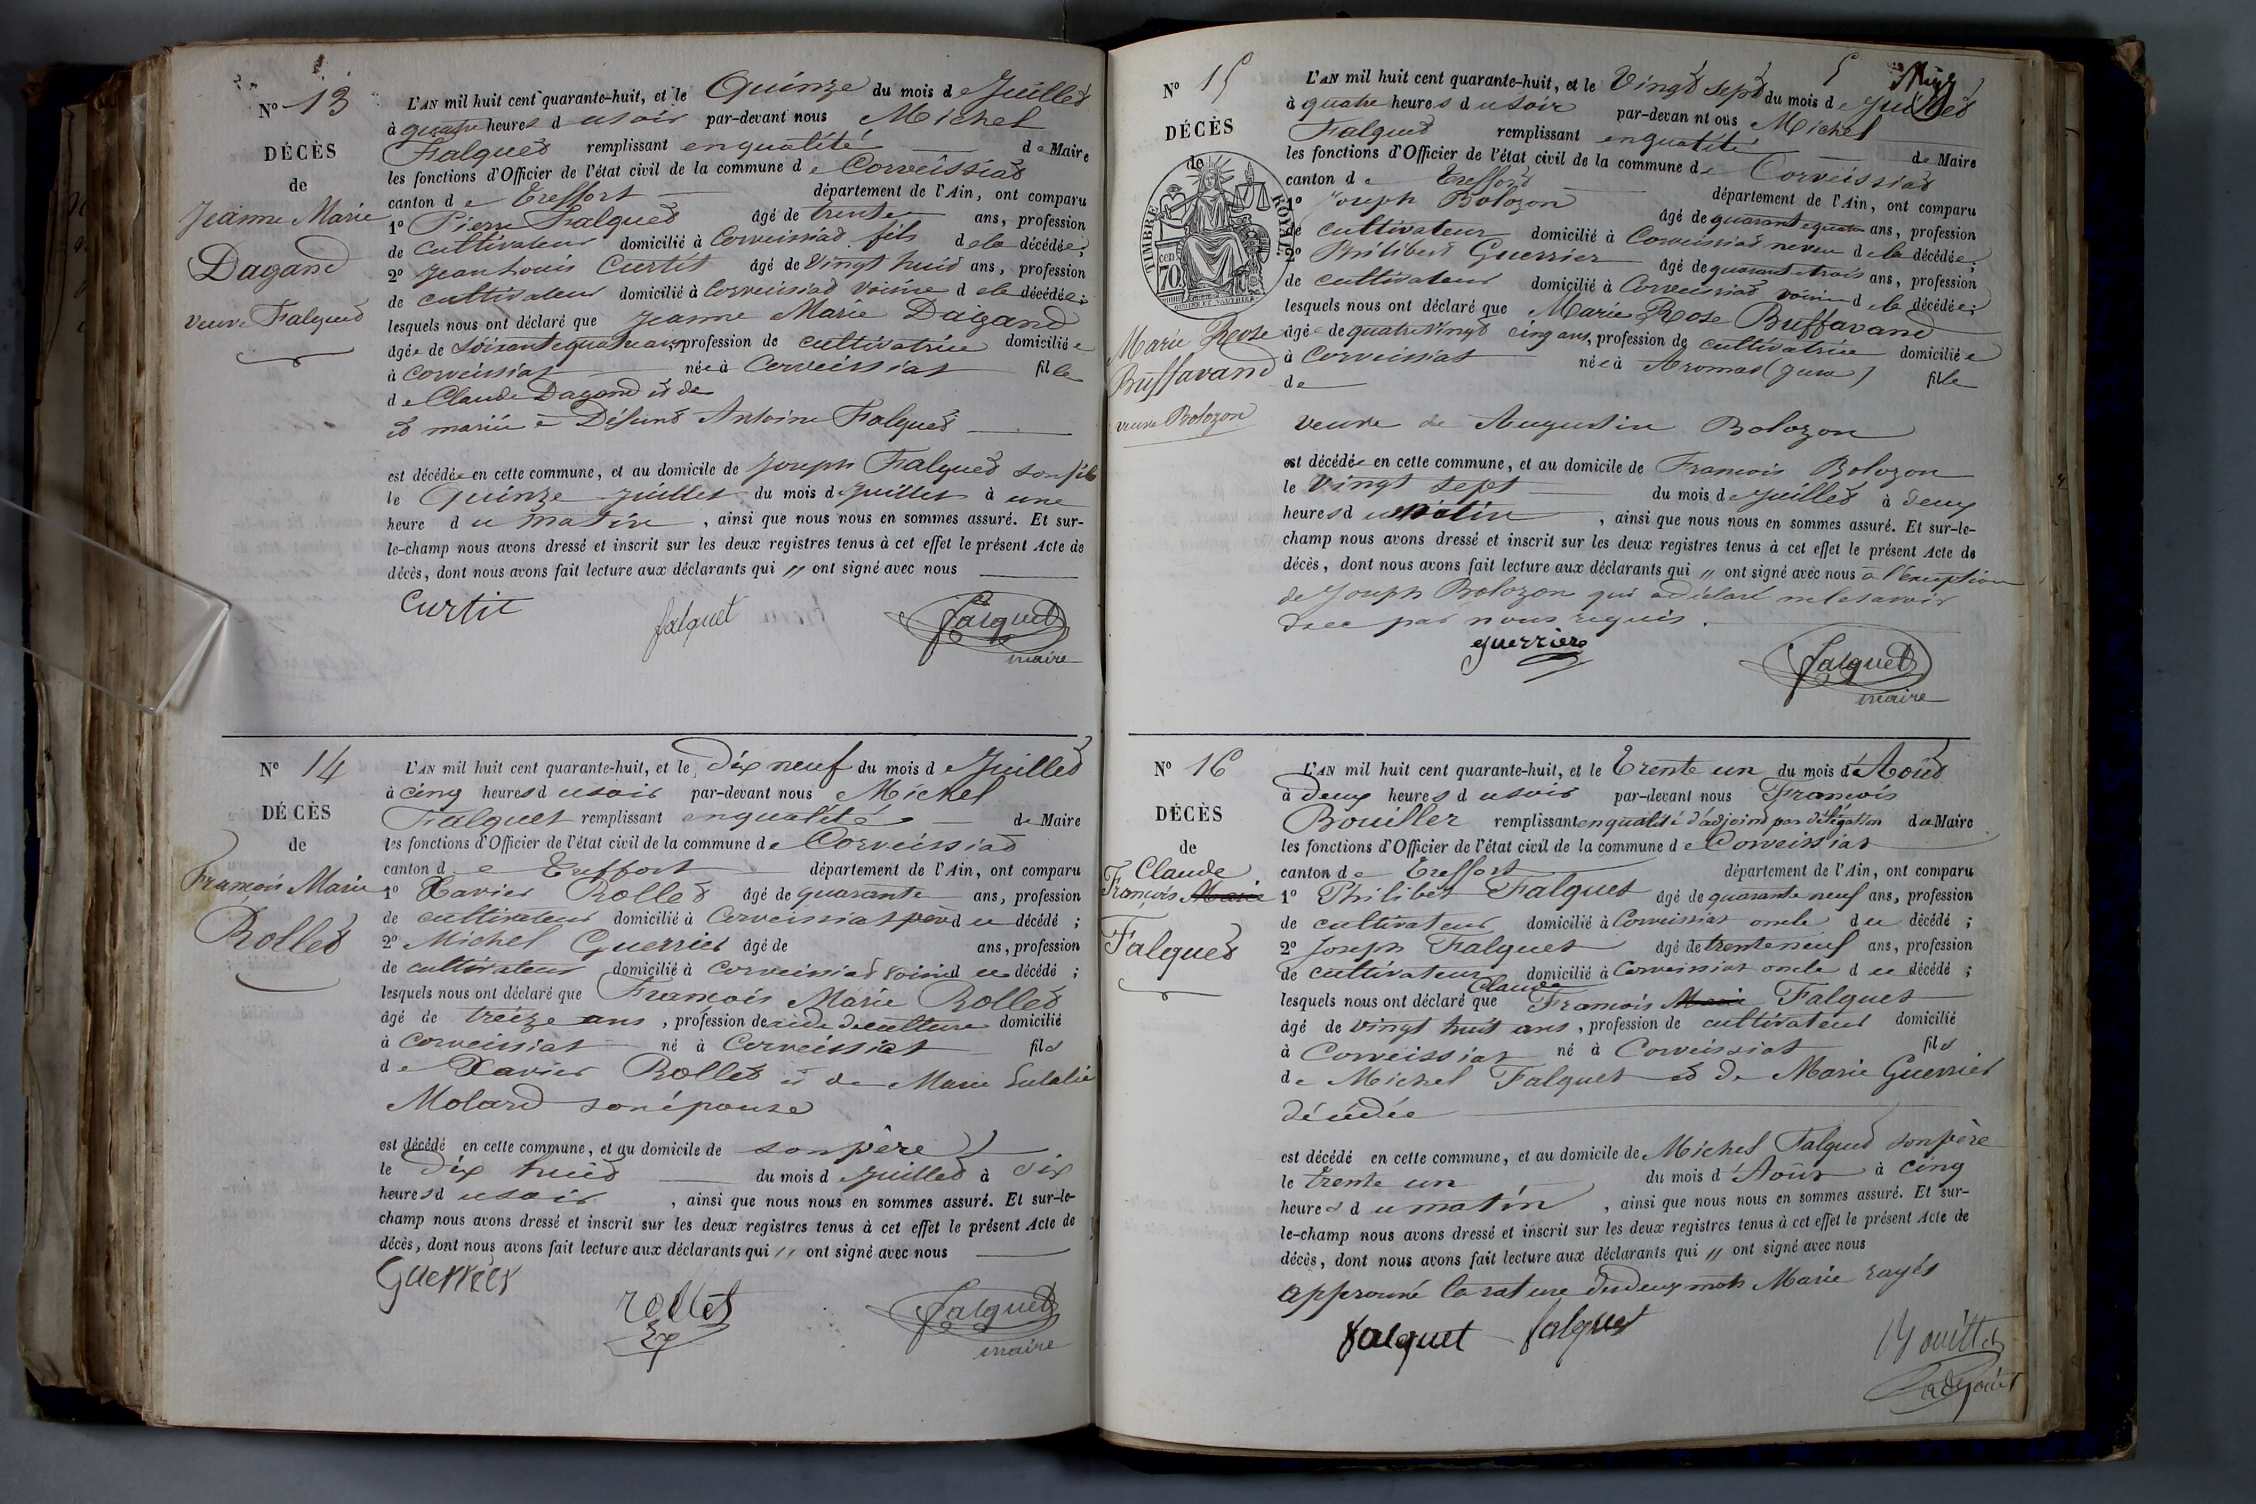 N° 13
DÉCÈS
de
Jeanne Marie
Dagand
veuve Falquet
L'AN mil huit cent quarante-huit, et le Quinze du mois de Juillet
à quatre heures du soir par-devant nous Michel
Falquet remplissant en qualité de Maire
les fonctions d'Officier de l'état civil de la commune de Corveissiat
canton de Treffort département de l'Ain, ont comparu
1° Pierre Falquet âgé de trente ans, profession
de cultivateur domicilié à Corveissiat fils de la décédée;
2° Jean Louis Curtit âgé de Vingt huit ans, profession
de cultivateur domicilié à Corveissiat voisin de la décédée;
lesquels nous ont déclaré que Jeanne Marie Dagand
âgée de soixante quatre ans, profession de cultivatrice domiciliée
à Corveissiat née à Corveissiat fille
de Claude Dagand et de
et mariée à Défunt Antoine Falquet
est décédée en cette commune, et au domicile de Joseph Falquet son fils
le Quinze juillet du mois de Juillet à une
heure du matin, ainsi que nous nous en sommes assuré. Et sur-
le-champ nous avons dressé et inscrit sur les deux registres tenus à cet effet le présent Acte de
décès, dont nous avons fait lecture aux déclarants qui // ont signé avec nous
Curtit falquet falquet
maire
N° 14
DÉCÈS
de
François Marie
Rollet
L'AN mil huit cent quarante-huit, et le Dix neuf du mois de Juillet
à cinq heures du soir par-devant nous Michel
Falquet remplissant en qualité de Maire
les fonctions d'Officier de l'état civil de la commune de Corveissiat
canton de Treffort département de l'Ain, ont comparu
1° Xavier Rollet âgé de quarante ans, profession
de cultivateur domicilié à Corveissiat père du décédé;
2° Michel Guerrier âgé de ans, profession
de cultivateur domicilié à Corveissiat voisin du décédé;
lesquels nous ont déclaré que François Marie Rollet
âgé de treize ans, profession de aide de culture domicilié
à Corveissiat né à Corveissiat fils
de Xavier Rollet et de Marie Eulalie
Molard son épouse
est décédé en cette commune, et au domicile de son père
le Dix huit du mois de Juillet à six
heures du soir, ainsi que nous nous en sommes assuré. Et sur-le-
champ nous avons dressé et inscrit sur les deux registres tenus à cet effet le présent Acte de
décès, dont nous avons fait lecture aux déclarants qui // ont signé avec nous
Guerrier rollet falquet
maire
N° 15
5
DÉCÈS
de
TIMBRE ROYAL.
70 cen
Marie Rose
Buffavand
veuve Bolozon
L'AN mil huit cent quarante-huit, et le Vingt sept du mois de Juillet
à quatre heures du soir par-devan nt ous Michel
Falquet remplissant en qualité de Maire
les fonctions d'Officier de l'état civil de la commune de Corveissiat
canton de Treffort département de l'Ain, ont comparu
1° Joseph Bolozon âgé de quarante quatre ans, profession
de cultivateur domicilié à Corveissiat neveu de la décédée;
2° Philibert Guerrier âgé de quarante trois ans, profession
de cultivateur domicilié à Corveissiat voisin de la décédée;
lesquels nous ont déclaré que Marie Rose Buffavand
âgée de quatre Vingt cinq ans, profession de cultivatrice domiciliée
à Corveissiat née à Aromas (jura) fille
de
veuve de Augustin Bolozon
est décédée en cette commune, et au domicile de François Bolozon
le Vingt sept du mois de Juillet à deux
heures du matin, ainsi que nous nous en sommes assuré. Et sur-le-
champ nous avons dressé et inscrit sur les deux registres tenus à cet effet le présent Acte de
décès, dont nous avons fait lecture aux déclarants qui // ont signé avec nous à l'exception
de Joseph Bolozon qui a déclaré ne le savoir
de ce par nous requis.
guerrier falquet
maire
N° 16
DÉCÈS
de
Claude
François Marie
Falquet
L'AN mil huit cent quarante-huit, et le Trente un du mois d'Août
à Deux heures du soir par-devant nous François
Bouiller remplissant en qualité d'adjoint par délégation du Maire
les fonctions d'Officier de l'état civil de la commune de Corveissiat
canton de Treffort département de l'Ain, ont comparu
1° Philibert Falquet âgé de quarante neuf ans, profession
de cultivateur domicilié à Corveissiat oncle du décédé;
2° Joseph Falquet âgé de trente neuf ans, profession
de cultivateur domicilié à Corveissiat oncle du décédé;
Claude
lesquels nous ont déclaré que François Marie Falquet
âgé de vingt huit ans, profession de cultivateur domicilié
à Corveissiat né à Corveissiat fils
de Michel Falquet et de Marie Guerrier
décédée
est décédé en cette commune, et au domicile de Michel Falquet son père
le trente un du mois d'Août à cinq
heures du matin, ainsi que nous nous en sommes assuré. Et sur-
le-champ nous avons dressé et inscrit sur les deux registres tenus à cet effet le présent Acte de
décès, dont nous avons fait lecture aux déclarants qui // ont signé avec nous
approuvé la rature des deux mots Marie rayés
falquet falquet Bouiller
adjoint